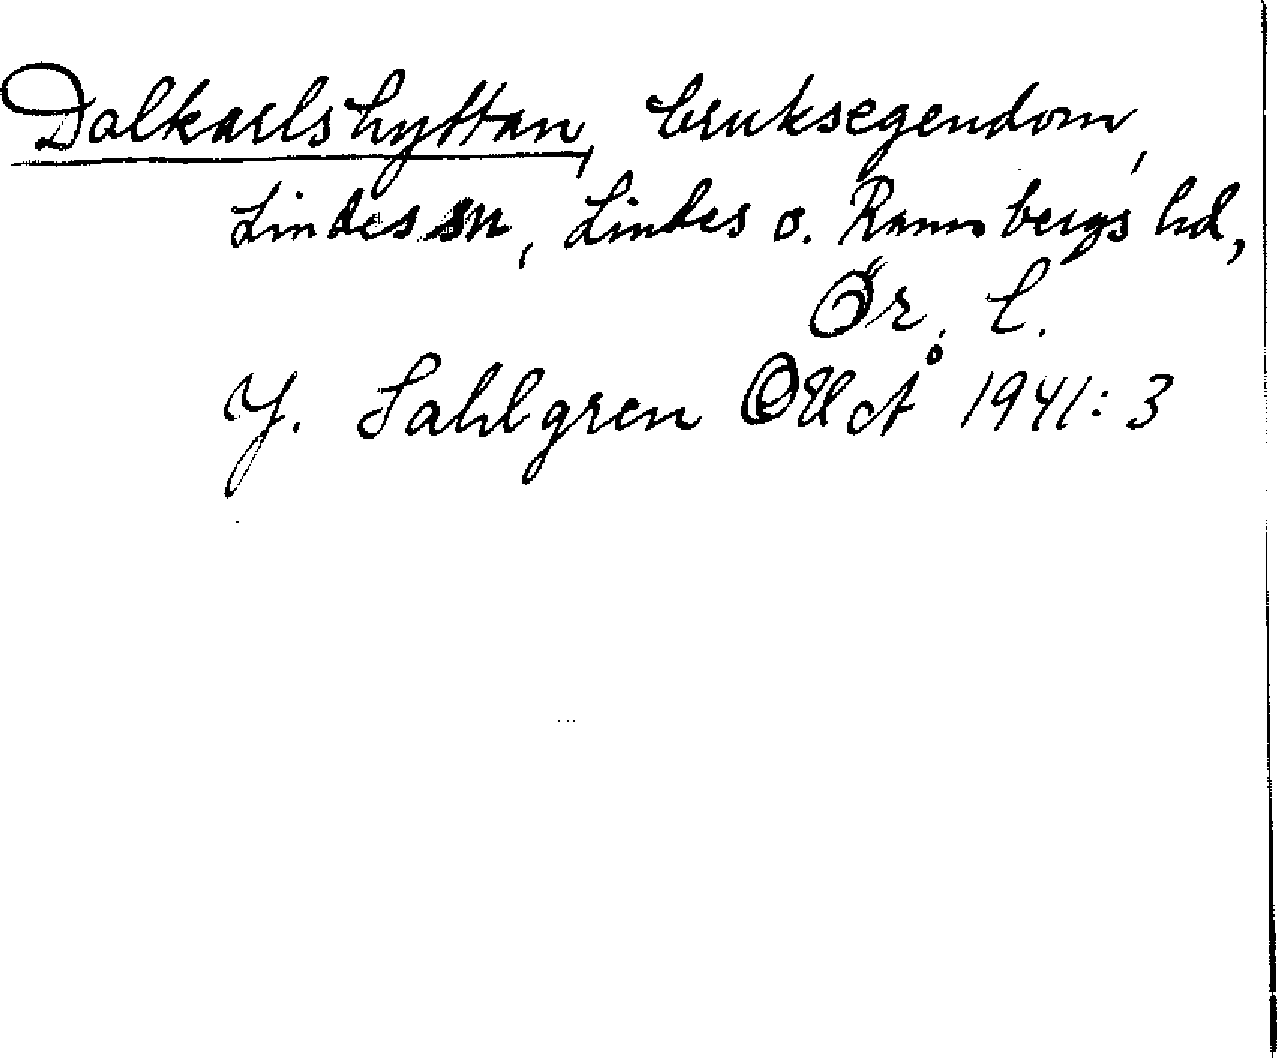 Dalkarlshyttan, bruksegendom,
Lindes sn, Lindes o. Ramsbergs hd,
Ör. l.
J. Sahlgren OUÅ 1941:3